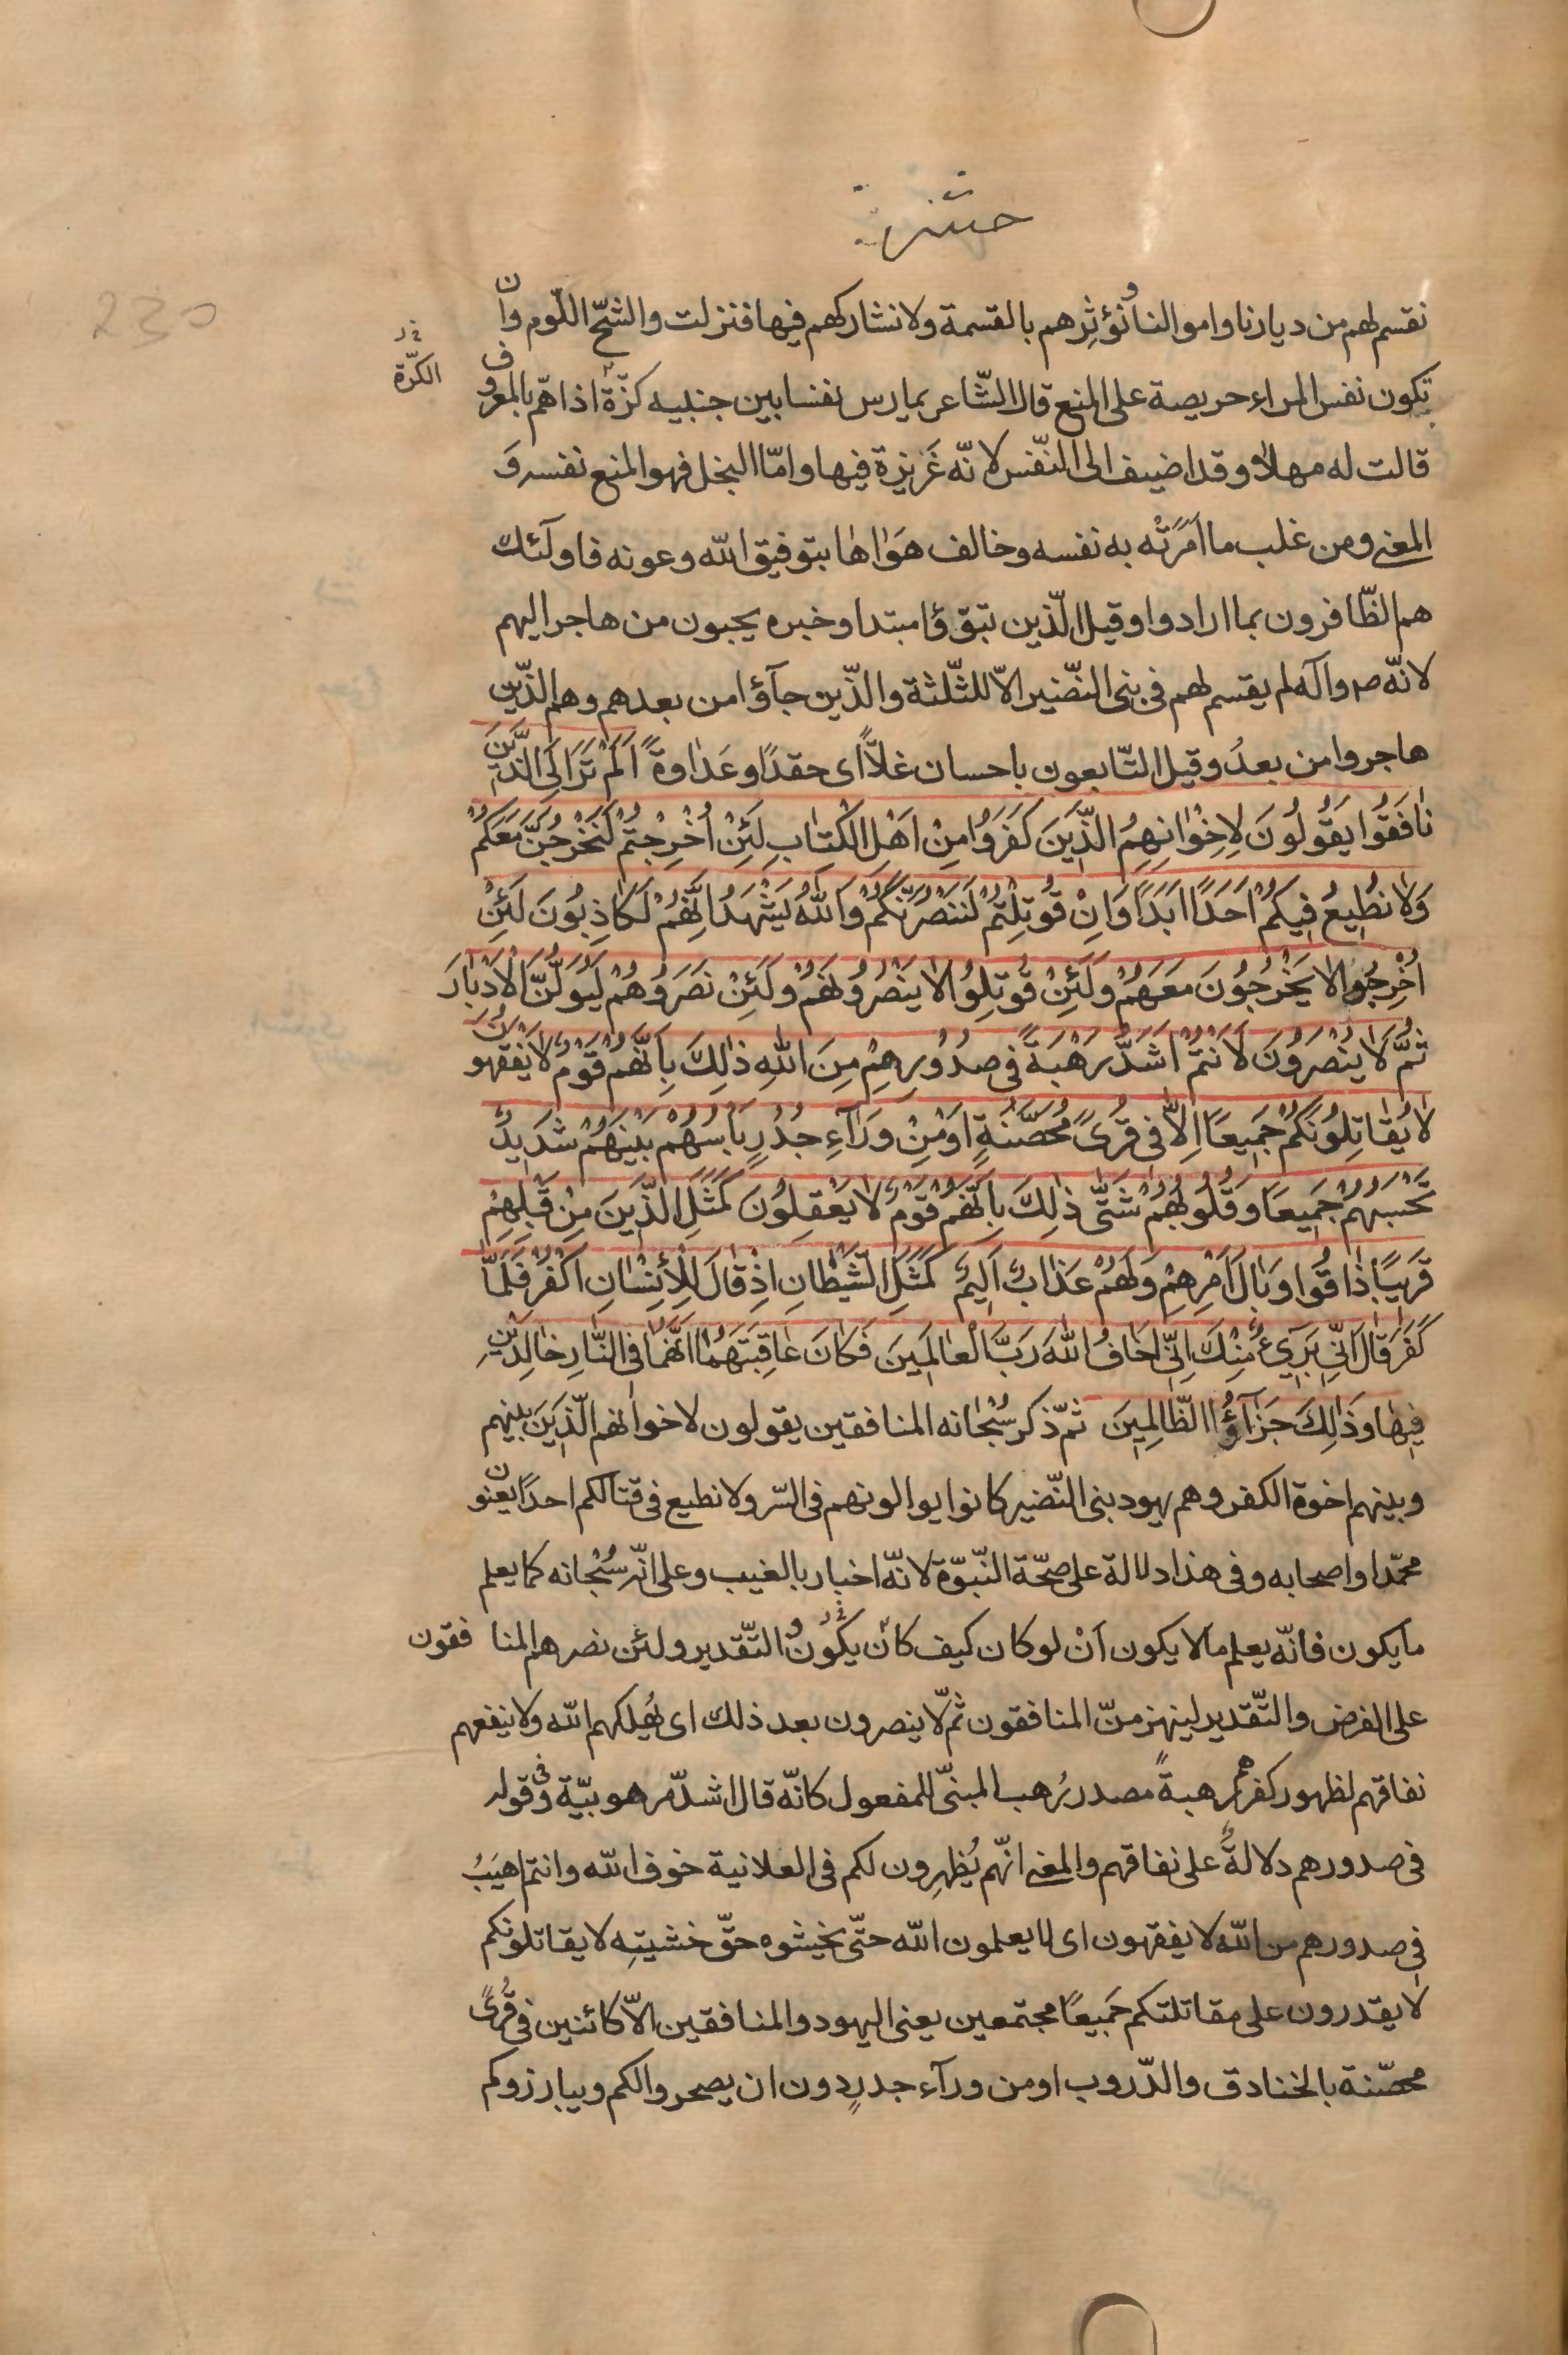 حشر
230
نقسم لهم من ديارنا واموالنا ونؤثرهم بالقسمة ولا نشاركهم فيها فنزلت والشحّ اللّوم وان
تكون نفس المراء حريصة على المنع قال الشّاعر يمارس نفسا بين جنبيه كزّة اذا همّ بالمعروف
الكرّة
قالت له مهلا وقد اضيف الى النّفس لانّه غَزيزة فيها وامّا البخل فهو المنع نفسه وَ
المعنى ومن غلب ما امَرَتْه به نفسه وخالف هَوٰاها بتوفيق الله وعونه فاولٓئك
هم الظّافرون بما ارادوا وقيل الّذين تبوّؤا مبتدا وخبره يحبون من هاجر اليهم
لانّه ص وآله لم يقسم لهم فى بنى النّضير الاّ للثّلثة والذّين جآؤا من بعدهم وهم الذّين
هاجروا من بعدُ وقيل التّابعون باحسان غلاًّ اى حقدًا وعَداوةً اَلَمْ تَرَ اِلَى الَّذينَ
نٰافَقُوا يَقُولُونَ لِاِخْوٰانِهِمُ الَّذينَ كَفَرَوُا مِنْ اَهْلِ الْكِتٰابِ لَئِنْ اُخْرِجْتُمْ لَنَخْرُجَنَّ مَعَكُمْ
وَلٰا نُطيعُ فيكُمْ اَحَدًا اَبَدًا وَاِنْ قُوتِلْتُمْ لَنَنْصُرَنَّكُمْ وَاللّٰهُ يَشْهَدُ اِنَّهُمْ لَكٰاذِبُونَ لَئِنْ
اُخْرِجُوا لٰا يَخْرُجُونَ مَعَهُمْ وَلَئِنْ قُوتِلُوا لٰا يَنْصُرُونَهُمْ وَلَئِنْ نَصَرُوهُمْ لَيُوَلُّنَّ الْاَدْبٰارَ
ثُمَّ لٰا يُنْصَرُونَ لَاَنْتُمْ اَشَدُّ رَهْبَةً فى صُدُورِهِمْ مِنَ اللّٰهِ ذٰلِكَ بِاَنَّهُمْ قَوْمٌ لٰا يَفْقَهُونَ
لٰا يُقٰاتِلُونَكُمْ جَميعًا اِلاّٰ فى قُرًى مُحَصَّنَةٍ اَوْ مِنْ وَرٰآءِ جُدُرٍ بَاْسُهُمْ بَيْنَهُمْ شَديدٌ
تَحْسَبُهُمْ جَميعًا وَقُلُوبُهُمْ شَتّٰى ذٰلِكَ بِاَنَّهُمْ قَوْمٌ لٰا يَعْقِلُونَ كَمَثَلِ الَّذينَ مِنْ قَبْلِهِمْ
قَريبًا ذٰاقُوا وَبٰالَ اَمْرِهِمْ وَلَهُمْ عَذٰابٌ اَليمٌ كَمَثَلِ الشَّيْطٰانِ اِذْ قٰالَ لِلْاِنْسٰانِ اكْفُرْ فَلَمّٰا
كَفَرَ قٰالَ اِنّى بَرىٓءٌ مِنْكَ اِنّى اَخٰافُ اللّٰهَ رَبَّ الْعٰالَمينَ فَكٰانَ عٰاقِبَتَهُمٰا اَنَّهُمٰا فِى النّٰارِ خٰالِدَيْنِ
فيهٰا وَذٰلِكَ جَزٰآؤُا الظّٰالِمينَ ثمّ ذكر سُبْحٰانه المنافقين يقولون لاخوانهم الّذينَ بينهم
وبينهم اخوة الكفر وهم يهود بنى النّضير كانوا يوالونهم فى السّر ولا نطيع فى قتالكم احدًا يعنون
محمّدا واصحابه وفى هذا دلالة على صحّة النّبوّة لانّه اخبار بالغيب وعلى انّه سُبْحانه كما يعلم
ما يكون فانّه يعلم ما لا يكون اَنْ لو كان كيف كان يكون والتّقدير ولئن نصرهم المنافقون
على الفرض والتّقدير لينهزمنّ المنافقون ثمّ لا ينصرون بعد ذلك اى يُهلكهم الله ولا ينفعهم
نفاقهم لظهور كفرهم رهبةً مصدر رُهب المبنىّ للمفعول كانّه قال اشدّ مرهوبيّة وفى قوله
فى صدورهم دلالةٌ على نفاقهم والمعنى انّهم يُظهِرون لكم فى العلانية خوف الله وانتم اهيَبُ
فى صدورهم من الله لا يفقهون اى لا يعلمون الله حتّى يخشوه حقّ خشيتِه لا يقاتلونكم
لا يقدرون على مقاتلتكم جَميعًا مجتمعين يعنى اليهود والمنافقين الاّ كائنين فى قُرًى
محصّنة بالخنادق والدّروب او من ورآء جدرٍ دون ان يصحروا لكم ويبارزوكم